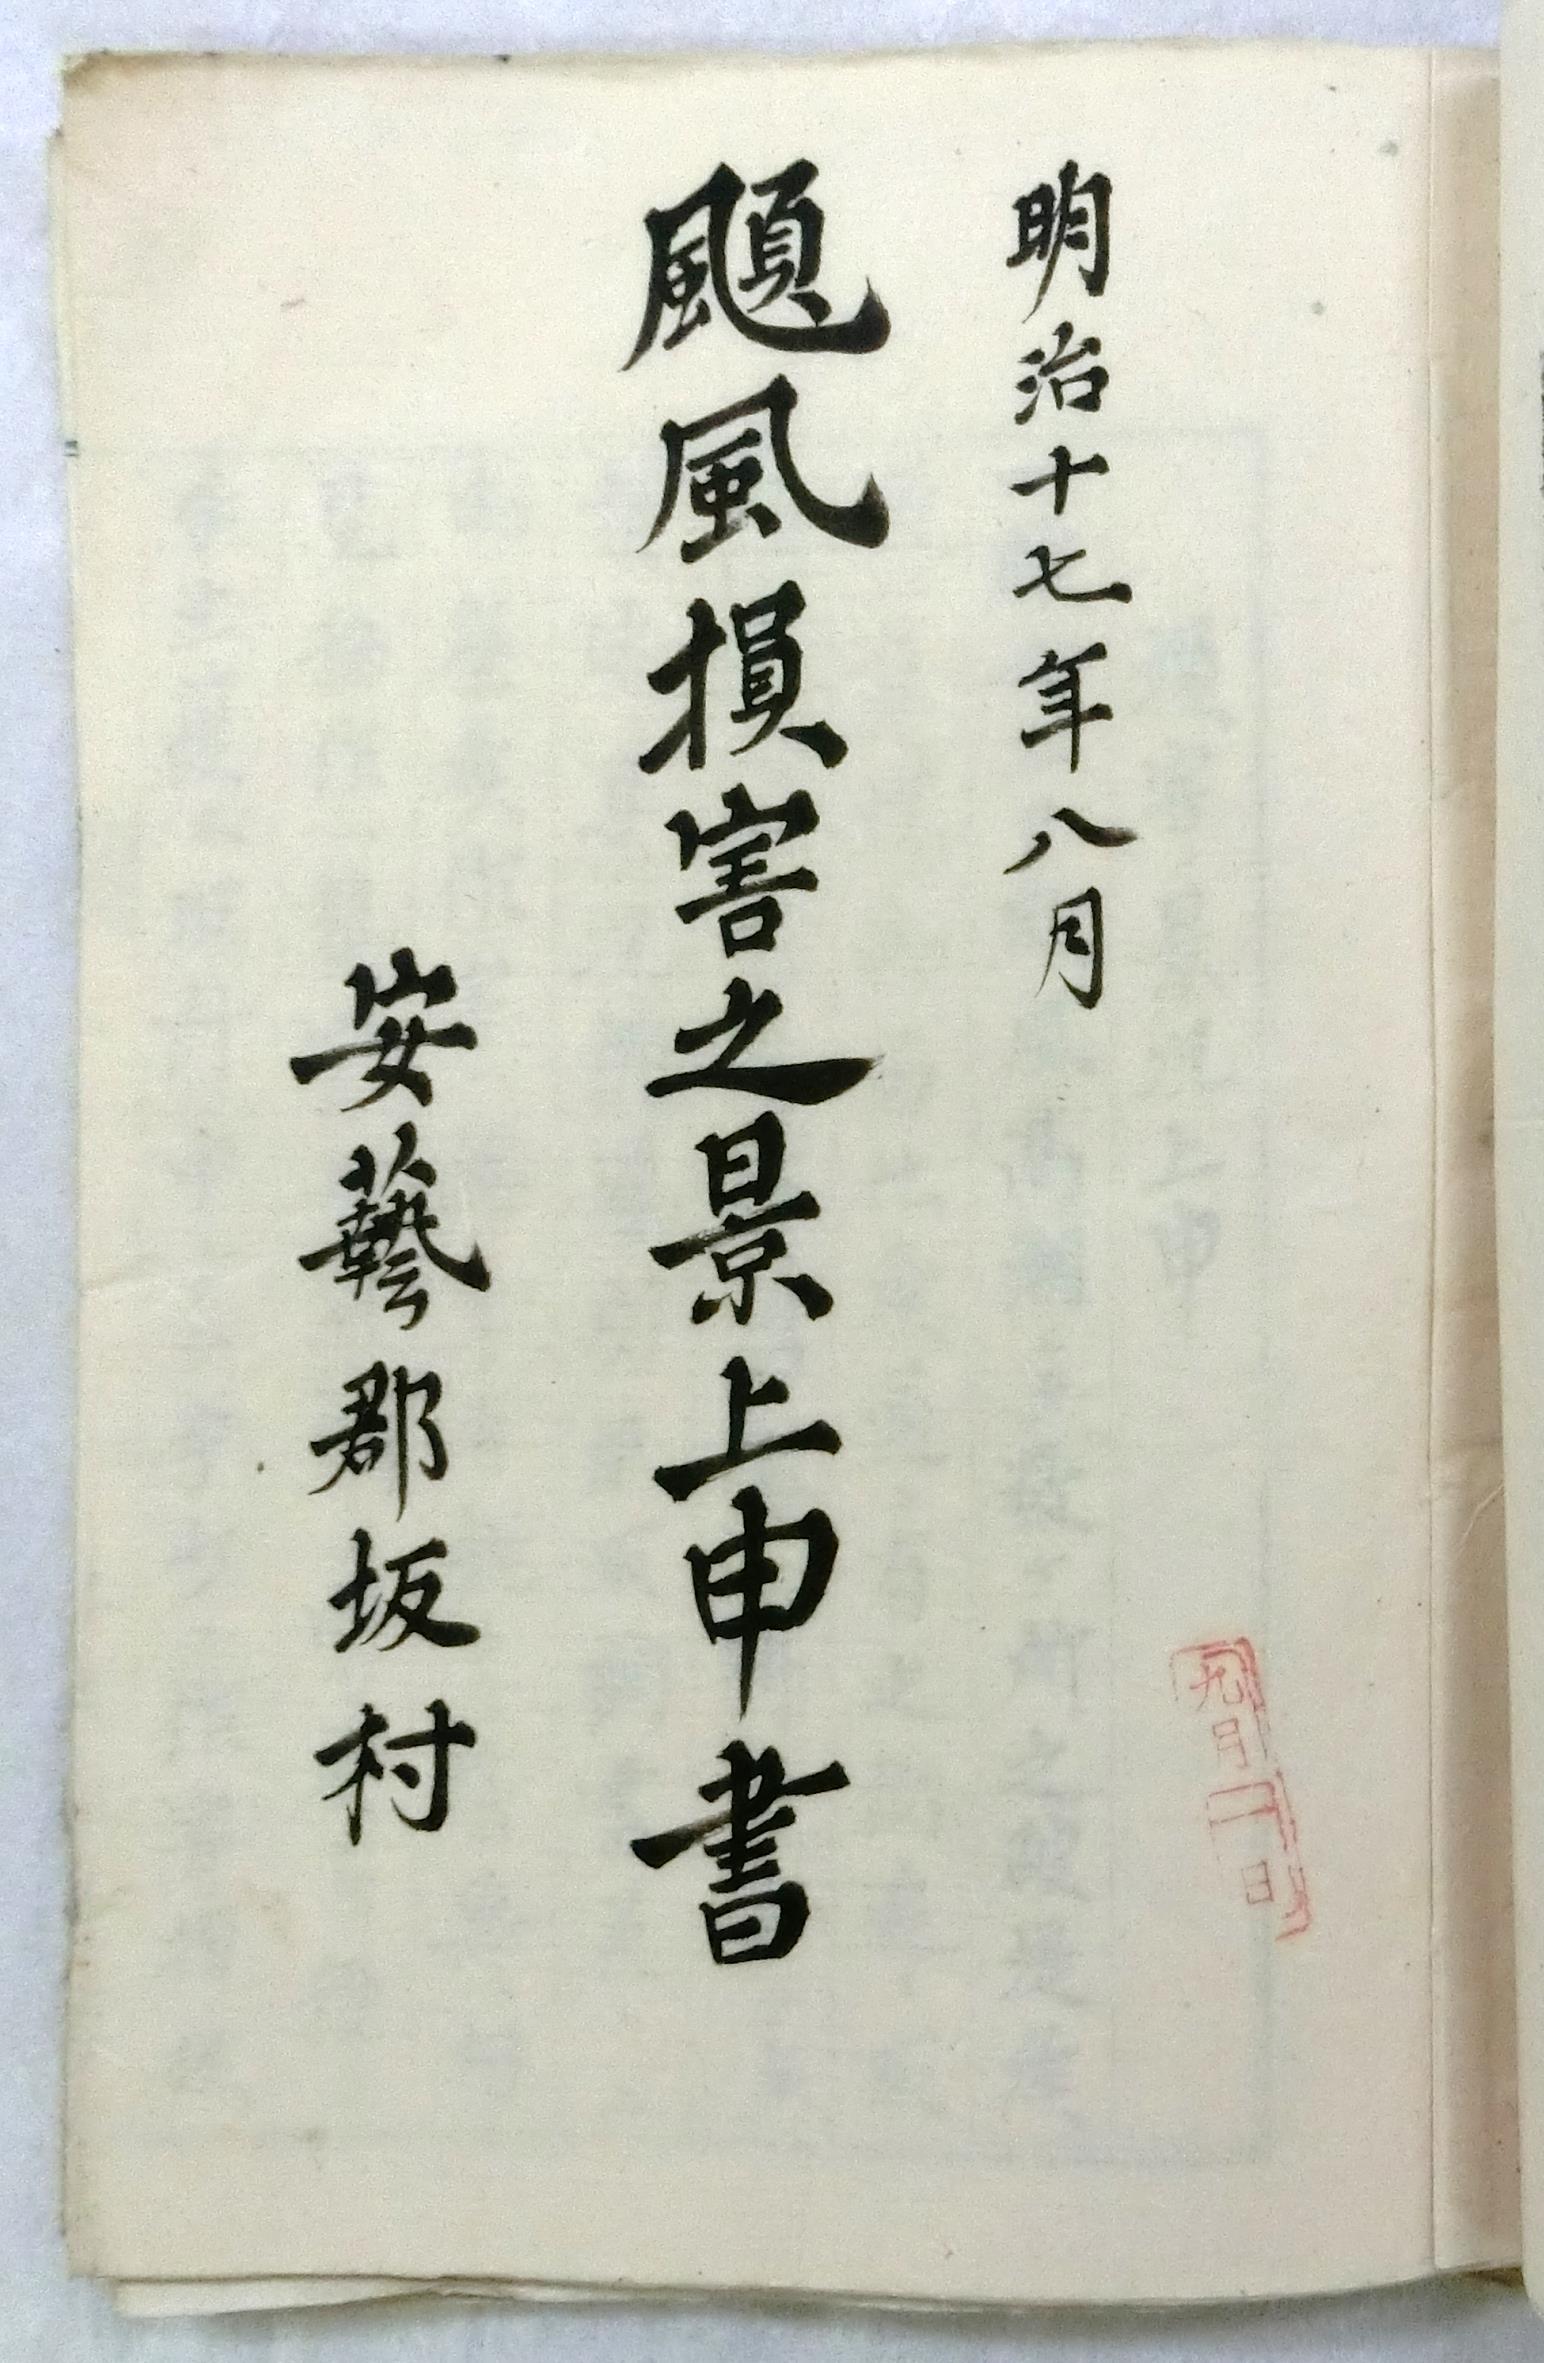 明治十七年八月
颶風損害之景上申書
安藝郡坂村
九月一日